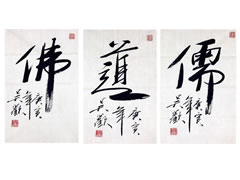 儒
庚寅
年
吴歡
道
庚寅
年
吴歡
佛
庚寅
年
吴歡